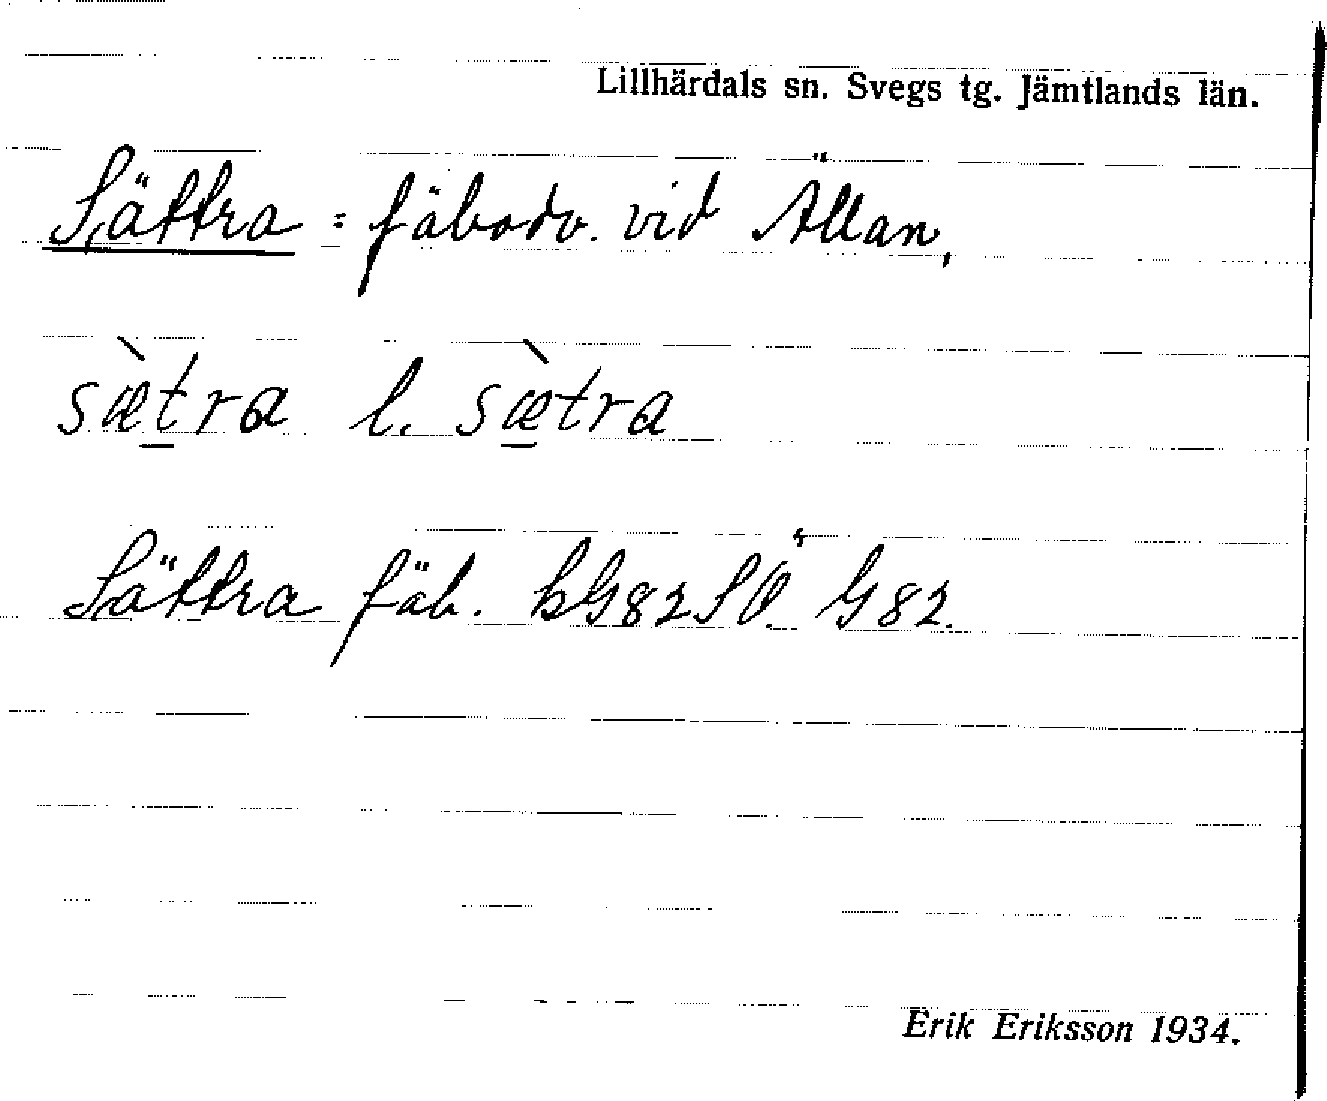 Lillhärdals sn. Svegs tg. Jämtlands län.
Sättra = fäbodv. vid Ällan,
sæ̀tra l. sæ̀tra
Sättra fäb. kG82SÖ G82.
Erik Eriksson 1934.